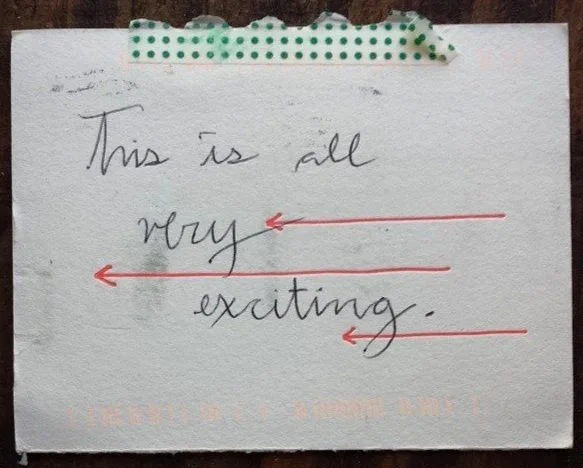 This is all
very
exciting.